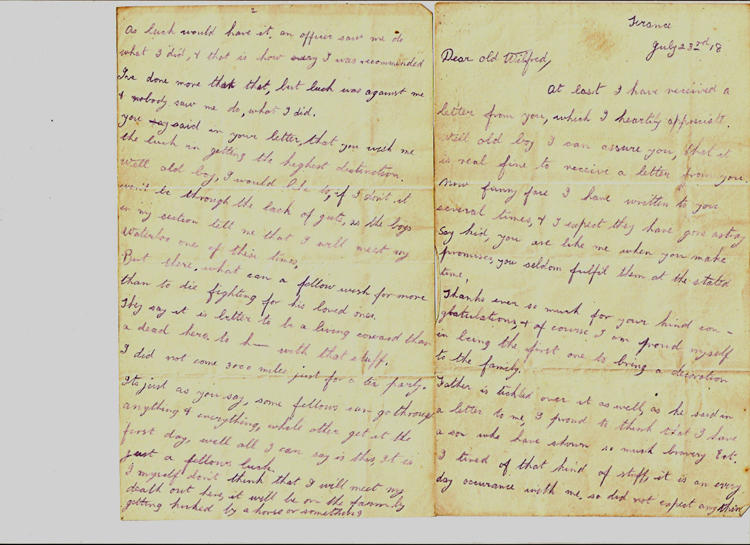 France
July 23rd 18
Dear old Wilfred,
At last I have received a
letter from you, which I heartily appreciate.
Well old boy I can assure you, that it
is real fine to receive a letter from you.
Now funny face I have written to you
several times, & I expect they have gone astray
Say kid, you are like me when you make
promises, you seldom fulfil them at the stated
time.
Thanks ever so much for your kind con-
gratulations, & of course I am proud myself
in being the first one to bring a decoration
to the family.
Father is tickled over it as well, as he said in
a letter to me, I proud to think that I have
a son who have shown so much bravery Ect.
I tired of that kind of stuff, it is an every
day occurance with me, so did not expect anything
2
As luck would have it, an officer saw me do
what I did, & that is how I was recommended
I've done more than that, but luck was against me
& nobody saw me do, what I did.
You say said in your letter, that you wish me
the luck in getting the highest destination.
Well old boy, I would like to, if I don't it
won't be through the lack of guts, as the boys
in my section tell me that I will meet my
Waterloo one of these times,
But there, what can a fellow wish for more
than to die fighting for his loved ones.
They say it is better to be a living coward than
a dead hero, to h— with that stuff.
I did not come 3000 miles just for a tea party.
Its just as you say, some fellows can go through
anything & everything, while other get it the
first day, well all I can say is this, It is
just a fellows luck.
I myself don't think that I will meet my
death out here, it will be on the farm by
getting kicked by a horse or something